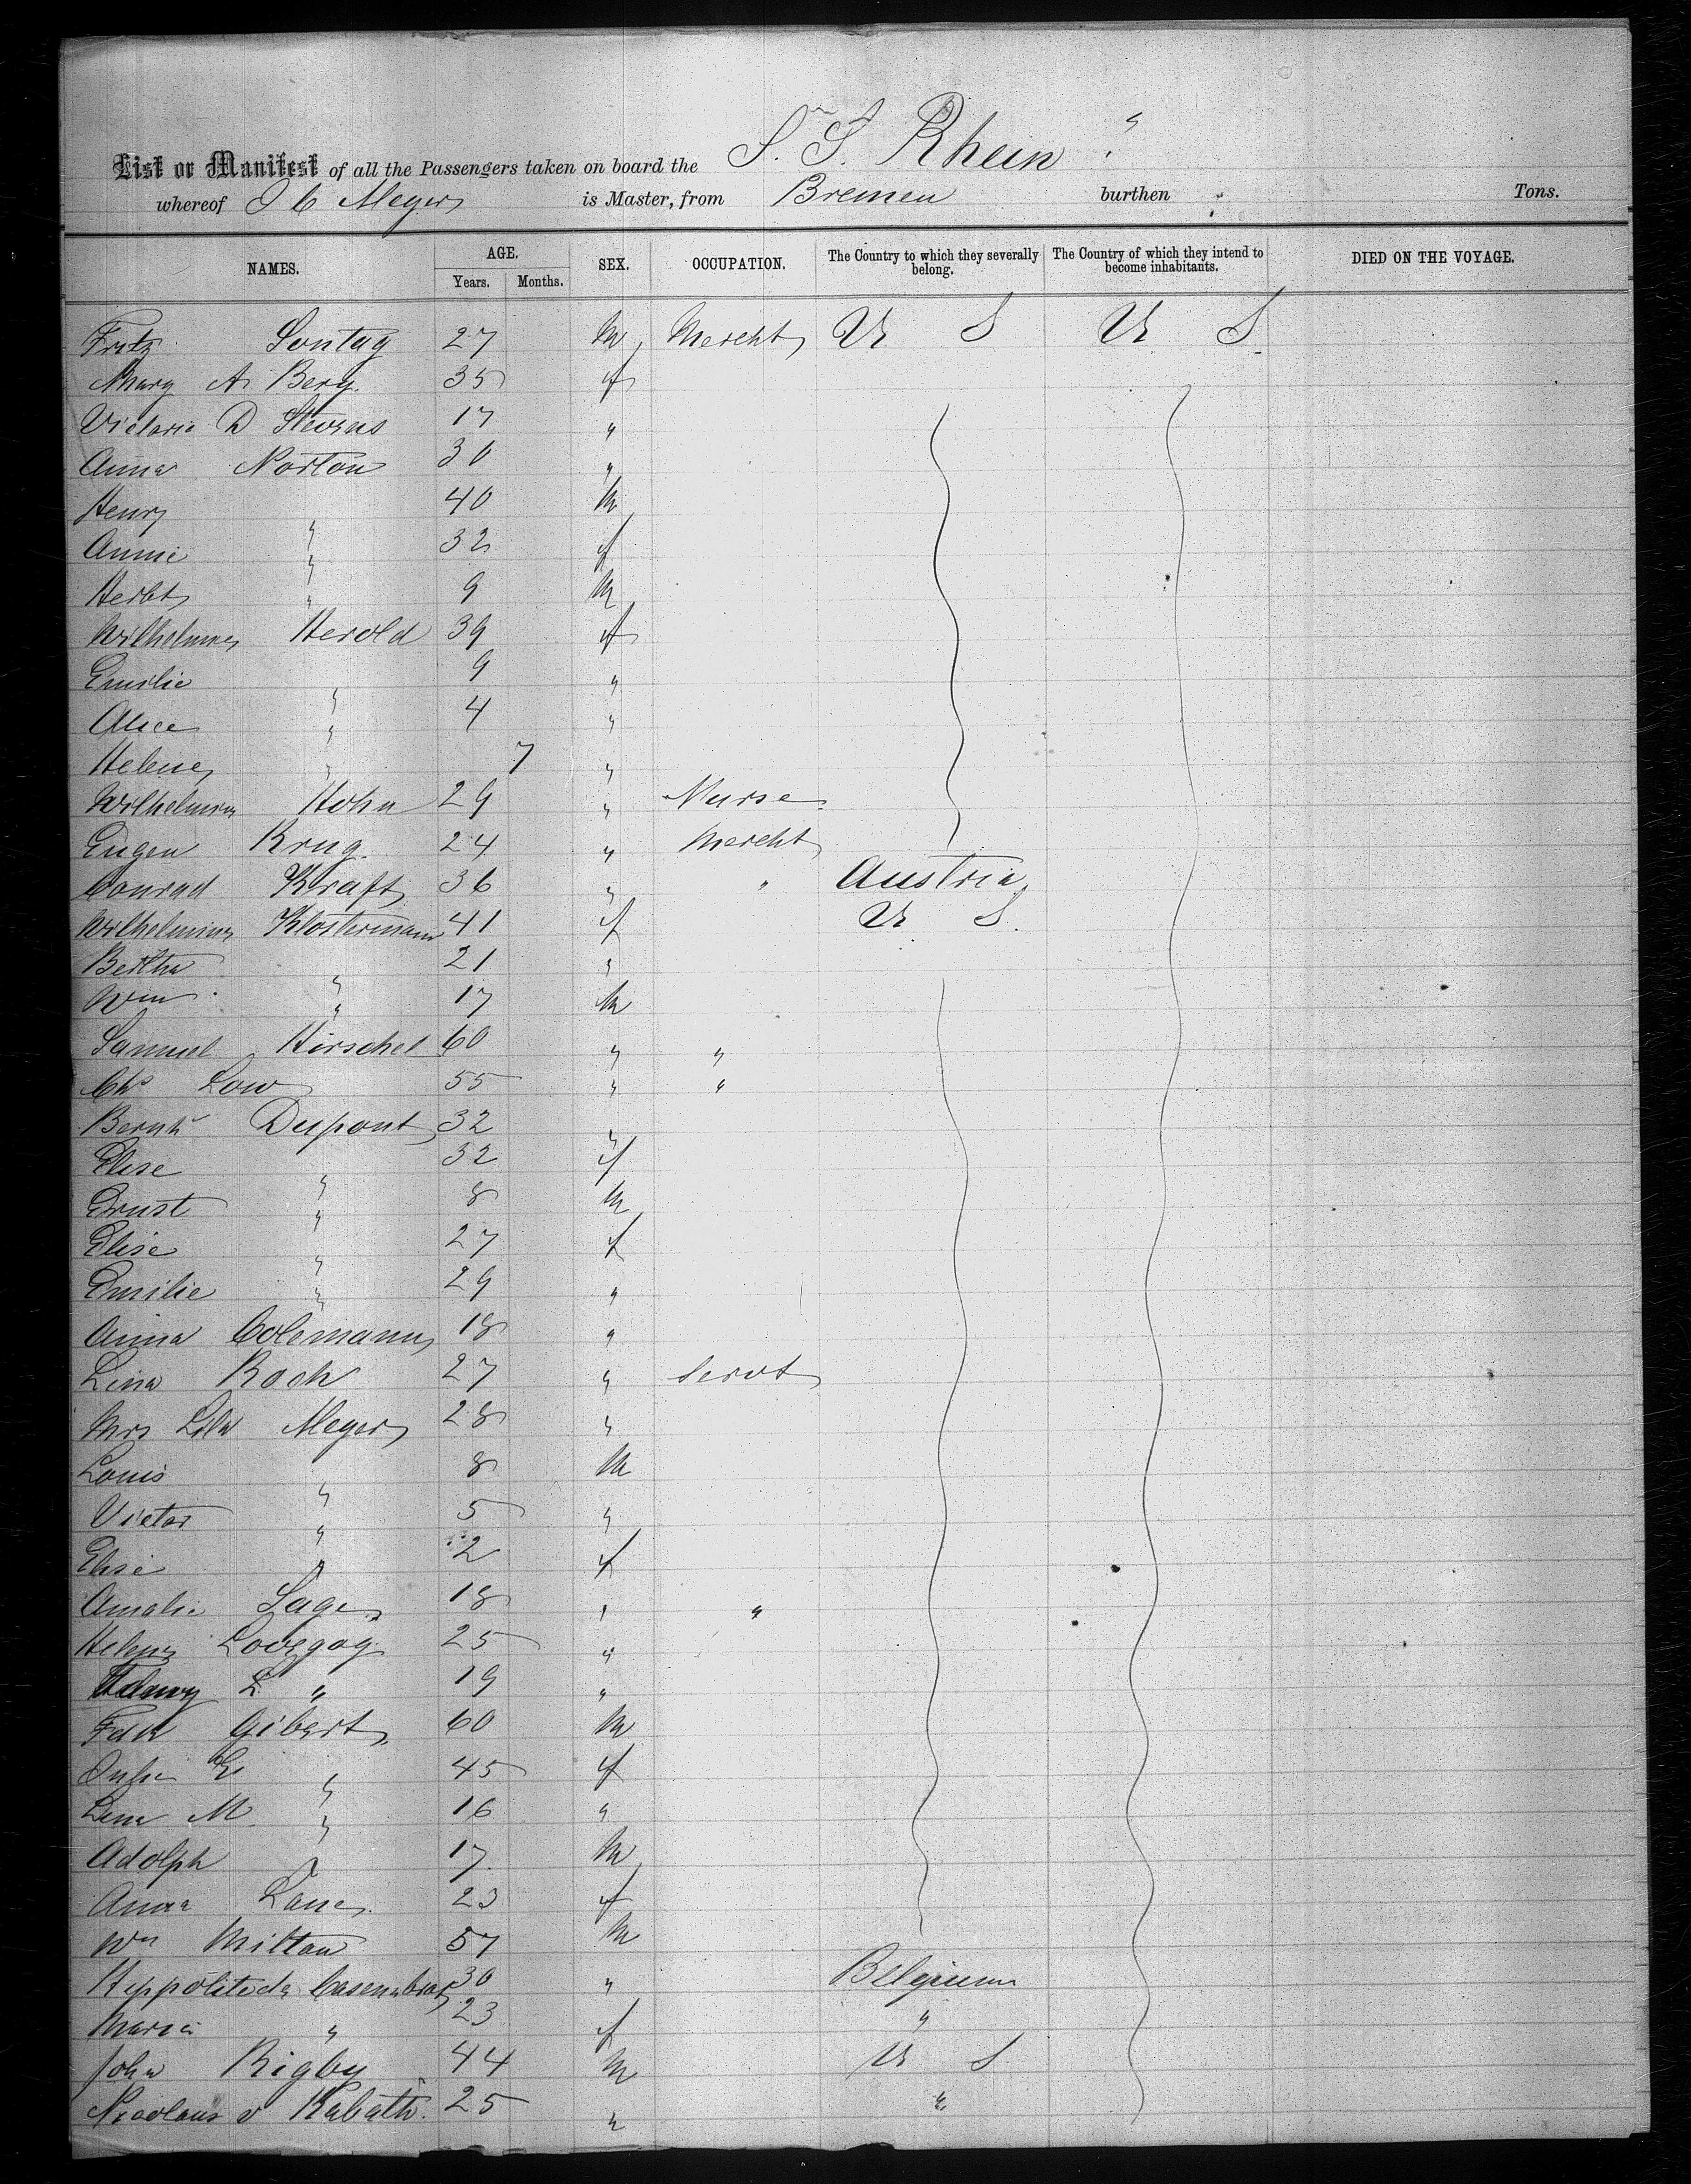 List or Manifest of all the Passengers taken on board the S. S. Rhein "
whereof J C Meyer is Master, from Bremen burthen Tons.
NAMES. AGE. SEX. OCCUPATION. The Country to which they severally belong. The Country of which they intend to become inhabitants. DIED ON THE VOYAGE.
Years. Months.
Fritz Sontag 27 m Mercht U S U S
Mary A. Berg. 35 f
Victoria D Stevens 17 "
Anna Norton 30 "
Henry " 40 m
Annie " 32 f
Herbt " 9 m
Wilhelmine Herold 39 f
Emilie " 9 "
Alice " 4 "
Helene " 7 "
Wilhelmina Hohn 29 " Nurse
Eugen Krug 24 " Mercht
Conrad Kraft 36 " " Austria
Wilhelmina Klostermann 41 f U S.
Bertha " 21 "
Wm " 17 m
Samuel Hirschel 60 " "
Chs Low 55 " "
Bernh Dupont 32 "
Elise " 32 f
Ernst " 8 m
Elise " 27 f
Emilie " 29 "
Anna Colemann 18 "
Lina Koch 27 " Servt
Mrs Lila Meyer 28 "
Louis " 8 m
Victor " 5 "
Elise " 2 f
Amalie Sage 18 " "
Helene 25 "
L " 19 "
Gibert 60 m
E " 45 f
Lina M " 16 "
Adolph " 17 m
Anna Lane 23 f
Wm Mittau 57 m
Hyppolite de 30 " Belgium
Maria " 23 f "
John Rigby 44 m U S
Nicolaus v Kabath. 25 " "